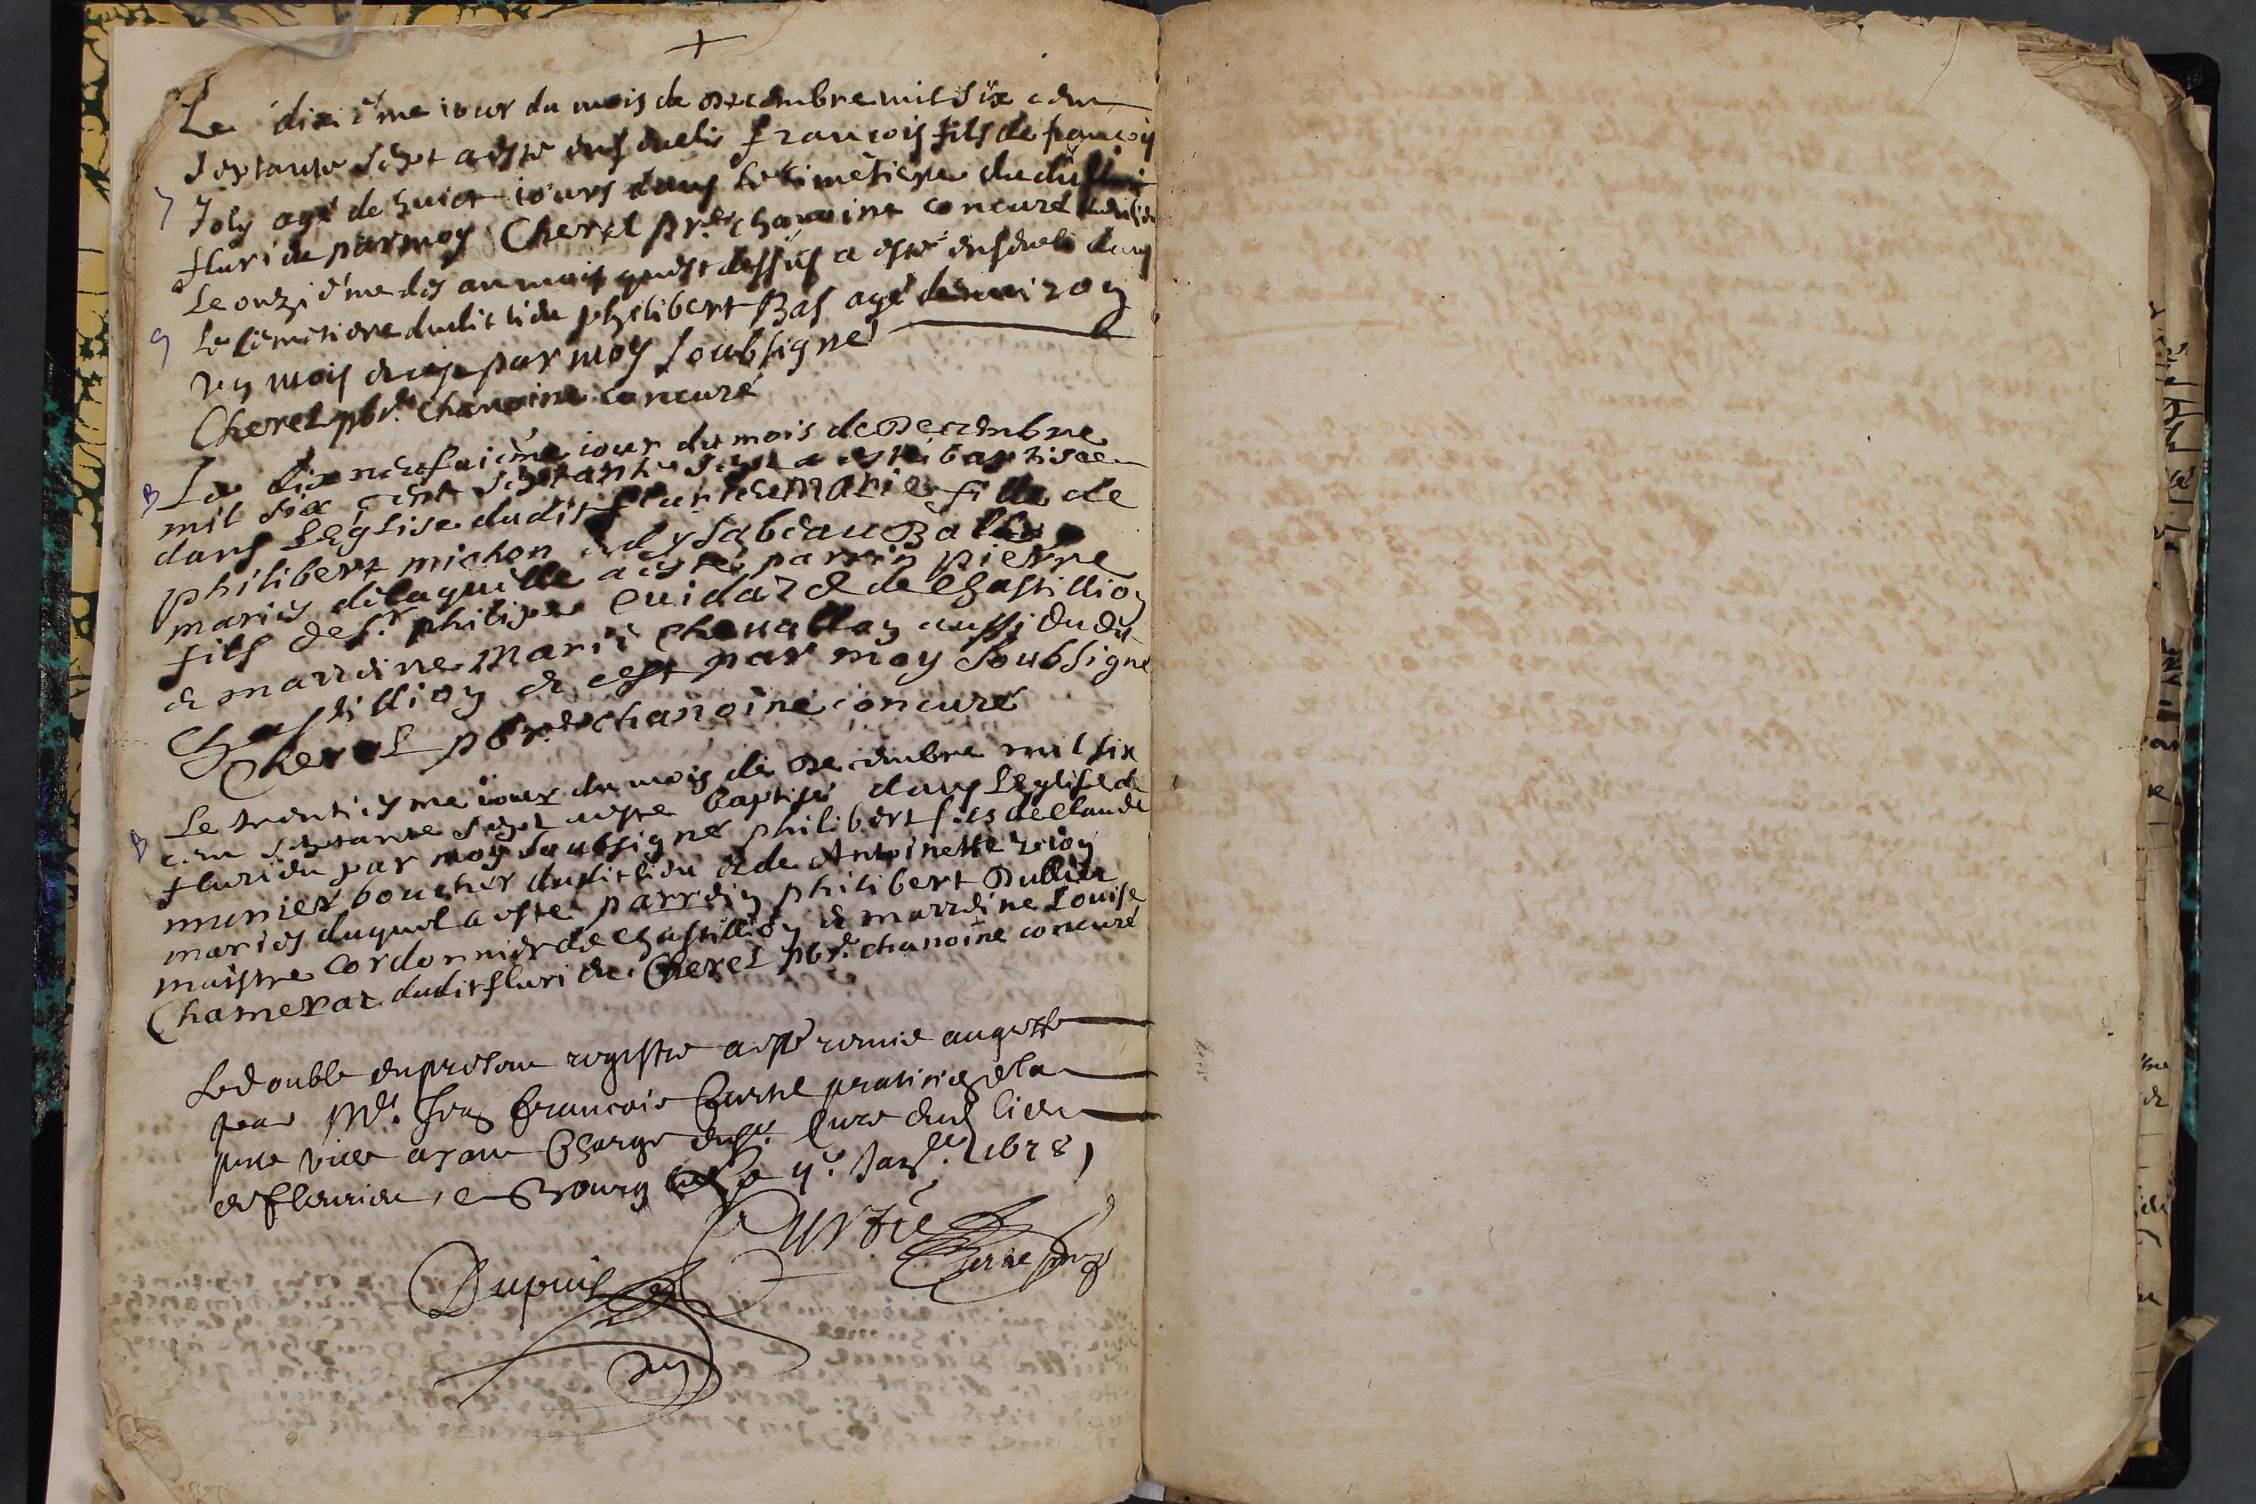 +
Le dixiême iour du mois de Decembre mil six cent
septante sept a esté enseueli francois fils de francois
Joly agé de huict iours dans le cimêtiere dudit
fluridu par moy Cheret pr. chanoine concuré dudit lieu
Le onziême des an mois que dessus a esté enseueli dans
Le cimêtiere dudict lieu philibert Bas agé denuiron
vn mois et ce par moy soubsigné
Cheret pbr. chanoine concuré
B Le dix neufuiême iour du mois de Decembre
mil six cent septante sept a esté baptisée
dans LEglise dudit fluridu Marie fille de
philibert michon et dysabeau
mariés de laquelle a esté parrin pierre
fils de Sr. philippe Cuidard de Chastillion
& marreine Marie Cheuallon aussi dudit
Chastillion & cest par moy soubsigné
Cheret pbr. chanoine concuré
B Le trentiesme iour du mois de Decembre mil six
cent septante sept a esté baptisé dans LEglise de
fluridu par moy soubsigné philibert fils de Claude
munier boucher dudict lieu & de Antoinette
mariés duquel a esté parrein philibert Dullin
maistre cordonnier de Chastillion & marreine Louise
Chamerat dudit fluridu Cheret pbr. chanoine concuré
Le double du present registre a esté remis au greffe
par Me. Jean francois pratitien
ville ayant Charge du Sr. Curé dud lieu
de fleurieu, a Bourg ce 4e. Jan. 1678)
Curtil
Dupuis